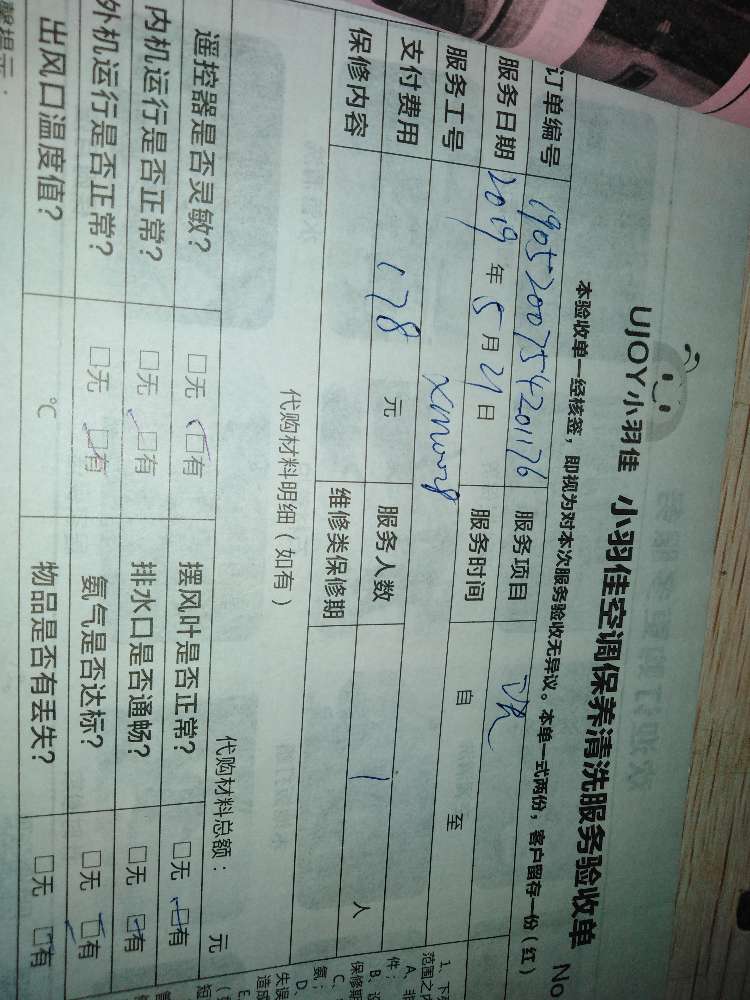 UJOY小羽佳 小羽佳空调保养清洗服务验收单 No
本验收单一经核签，即视为对本次服务验收无异议。本单一式两份，客户留存一份（红）
订单编号 1905200754201176 服务项目
服务日期 2019年5月21日 服务时间 自 至
服务工号 XMW028
支付费用 178 元 服务人数 1 人
保修内容 维修类保修期
代购材料明细（如有） 代购材料总额： 元
遥控器是否灵敏？ □无 □有 摆风叶是否正常？ □无 □有
内机运行是否正常？ □无 □有 排水口是否通畅？ □无 □有
外机运行是否正常？ □无 □有 氨气是否达标？ □无 □有
出风口温度值？ ℃ 物品是否有丢失？ □无 □有
馨提示：
1、下
范围之
A、非
件；
B、
保修期
C、
氨；
D、
失误
造成
E、